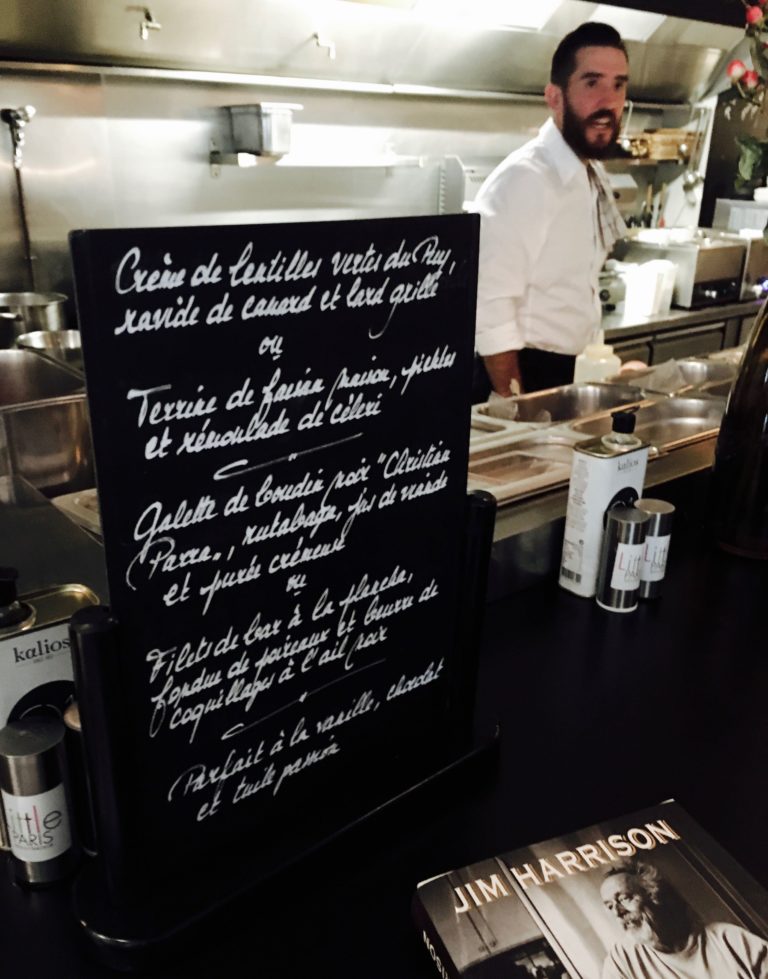 Crème de lentilles vertes du Puy,
ravide de canard et lard grillé
ou
Terrine de faisan maison, pickles
et rémoulade de céleri
Galette de boudin noix "Christian
Parra", rutabaga, jus de viande
et purée crémeuse
ou
Filets de bar à la plancha,
fondue de poireaux et beurre de
coquillages à l'ail noix
Parfait à la vanille, chocolat
et tuile passion
kalios
kalios
Little
PARIS
JIM HARRISON